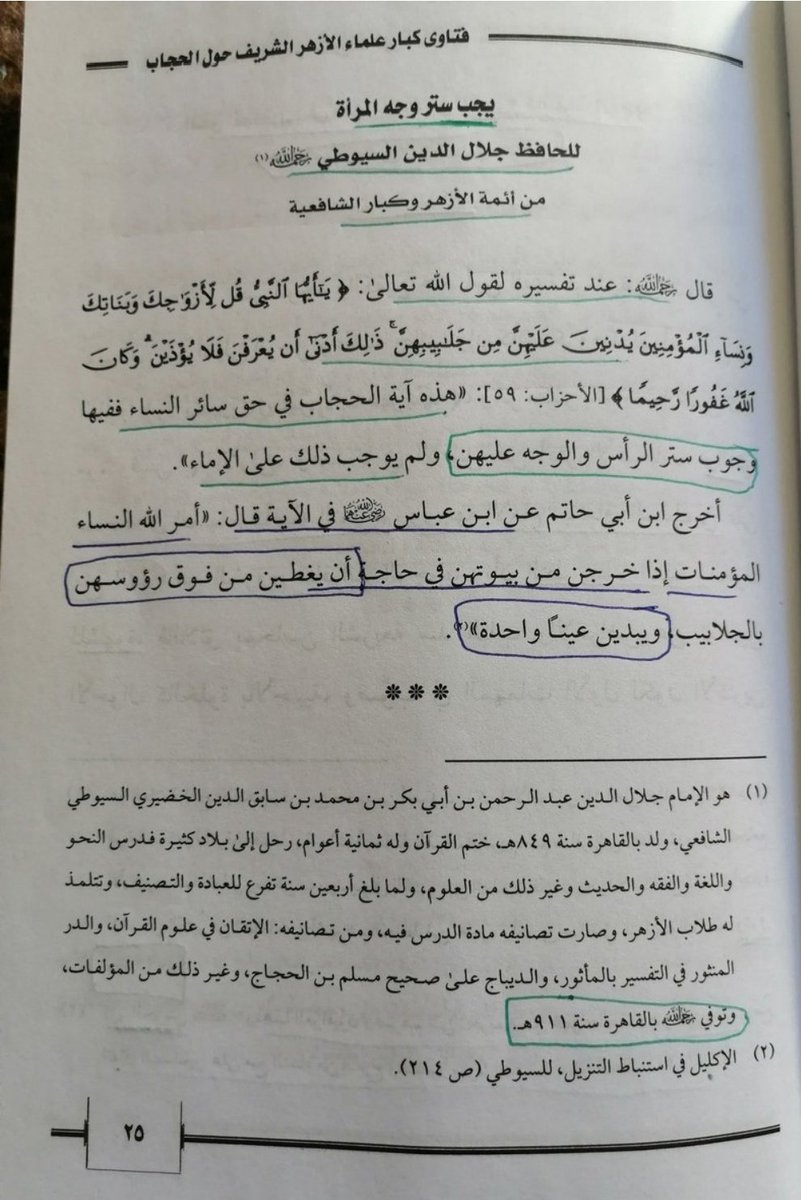 فتاوى كبار علماء الأزهر الشريف حول الحجاب
يجب ستر وجه المرأة
للحافظ جلال الدين السيوطي رحمه الله (١)
من أئمة الأزهر وكبار الشافعية
قال رحمه الله: عند تفسيره لقول الله تعالىٰ: ﴿ يَٰٓأَيُّهَا ٱلنَّبِيُّ قُل لِّأَزْوَٰجِكَ وَبَنَاتِكَ
وَنِسَآءِ ٱلْمُؤْمِنِينَ يُدْنِينَ عَلَيْهِنَّ مِن جَلَٰبِيبِهِنَّ ۚ ذَٰلِكَ أَدْنَىٰٓ أَن يُعْرَفْنَ فَلَا يُؤْذَيْنَ ۗ وَكَانَ
ٱللَّهُ غَفُورًا رَّحِيمًا ﴾ [الأحزاب: ٥٩]: «هذه آية الحجاب في حق سائر النساء ففيها
وجوب ستر الرأس والوجه عليهن، ولم يوجب ذلك علىٰ الإماء».
أخرج ابن أبي حاتم عن ابن عباس رضي الله عنهما في الآية قال: «أمر الله النساء
المؤمنات إذا خرجن من بيوتهن في حاجة أن يغطين من فوق رؤوسهن
بالجلابيب، ويبدين عينًا واحدة»(٢).
***
(١) هو الإمام جلال الدين عبد الرحمن بن أبي بكر بن محمد بن سابق الدين الخضيري السيوطي
الشافعي، ولد بالقاهرة سنة ٨٤٩هـ، ختم القرآن وله ثمانية أعوام، رحل إلىٰ بلاد كثيرة فدرس النحو
واللغة والفقه والحديث وغير ذلك من العلوم، ولما بلغ أربعين سنة تفرغ للعبادة والتصنيف، وتتلمذ
له طلاب الأزهر، وصارت تصانيفه مادة الدرس فيه، ومن تصانيفه: الإتقان في علوم القرآن، والدر
المنثور في التفسير بالمأثور، والديباج علىٰ صحيح مسلم بن الحجاج، وغير ذلك من المؤلفات،
وتوفي رحمه الله بالقاهرة سنة ٩١١هـ.
(٢) الإكليل في استنباط التنزيل، للسيوطي (ص ٢١٤).
٢٥